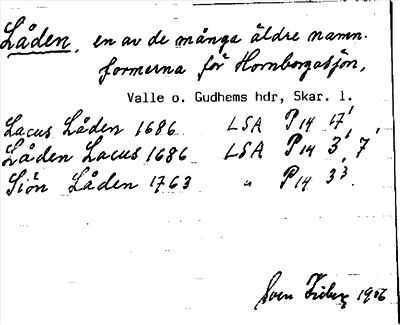 Låden, en av de många äldre namn-
formerna för Hornborgasjön,
Valle o. Gudhems hdr, Skar. l.
Lacus Låden 1686 LSA P14 17¹
Låden Lacus 1686 LSA P14 3¹, 7¹
Siön Låden 1763 " P14 3³
Sven 1956